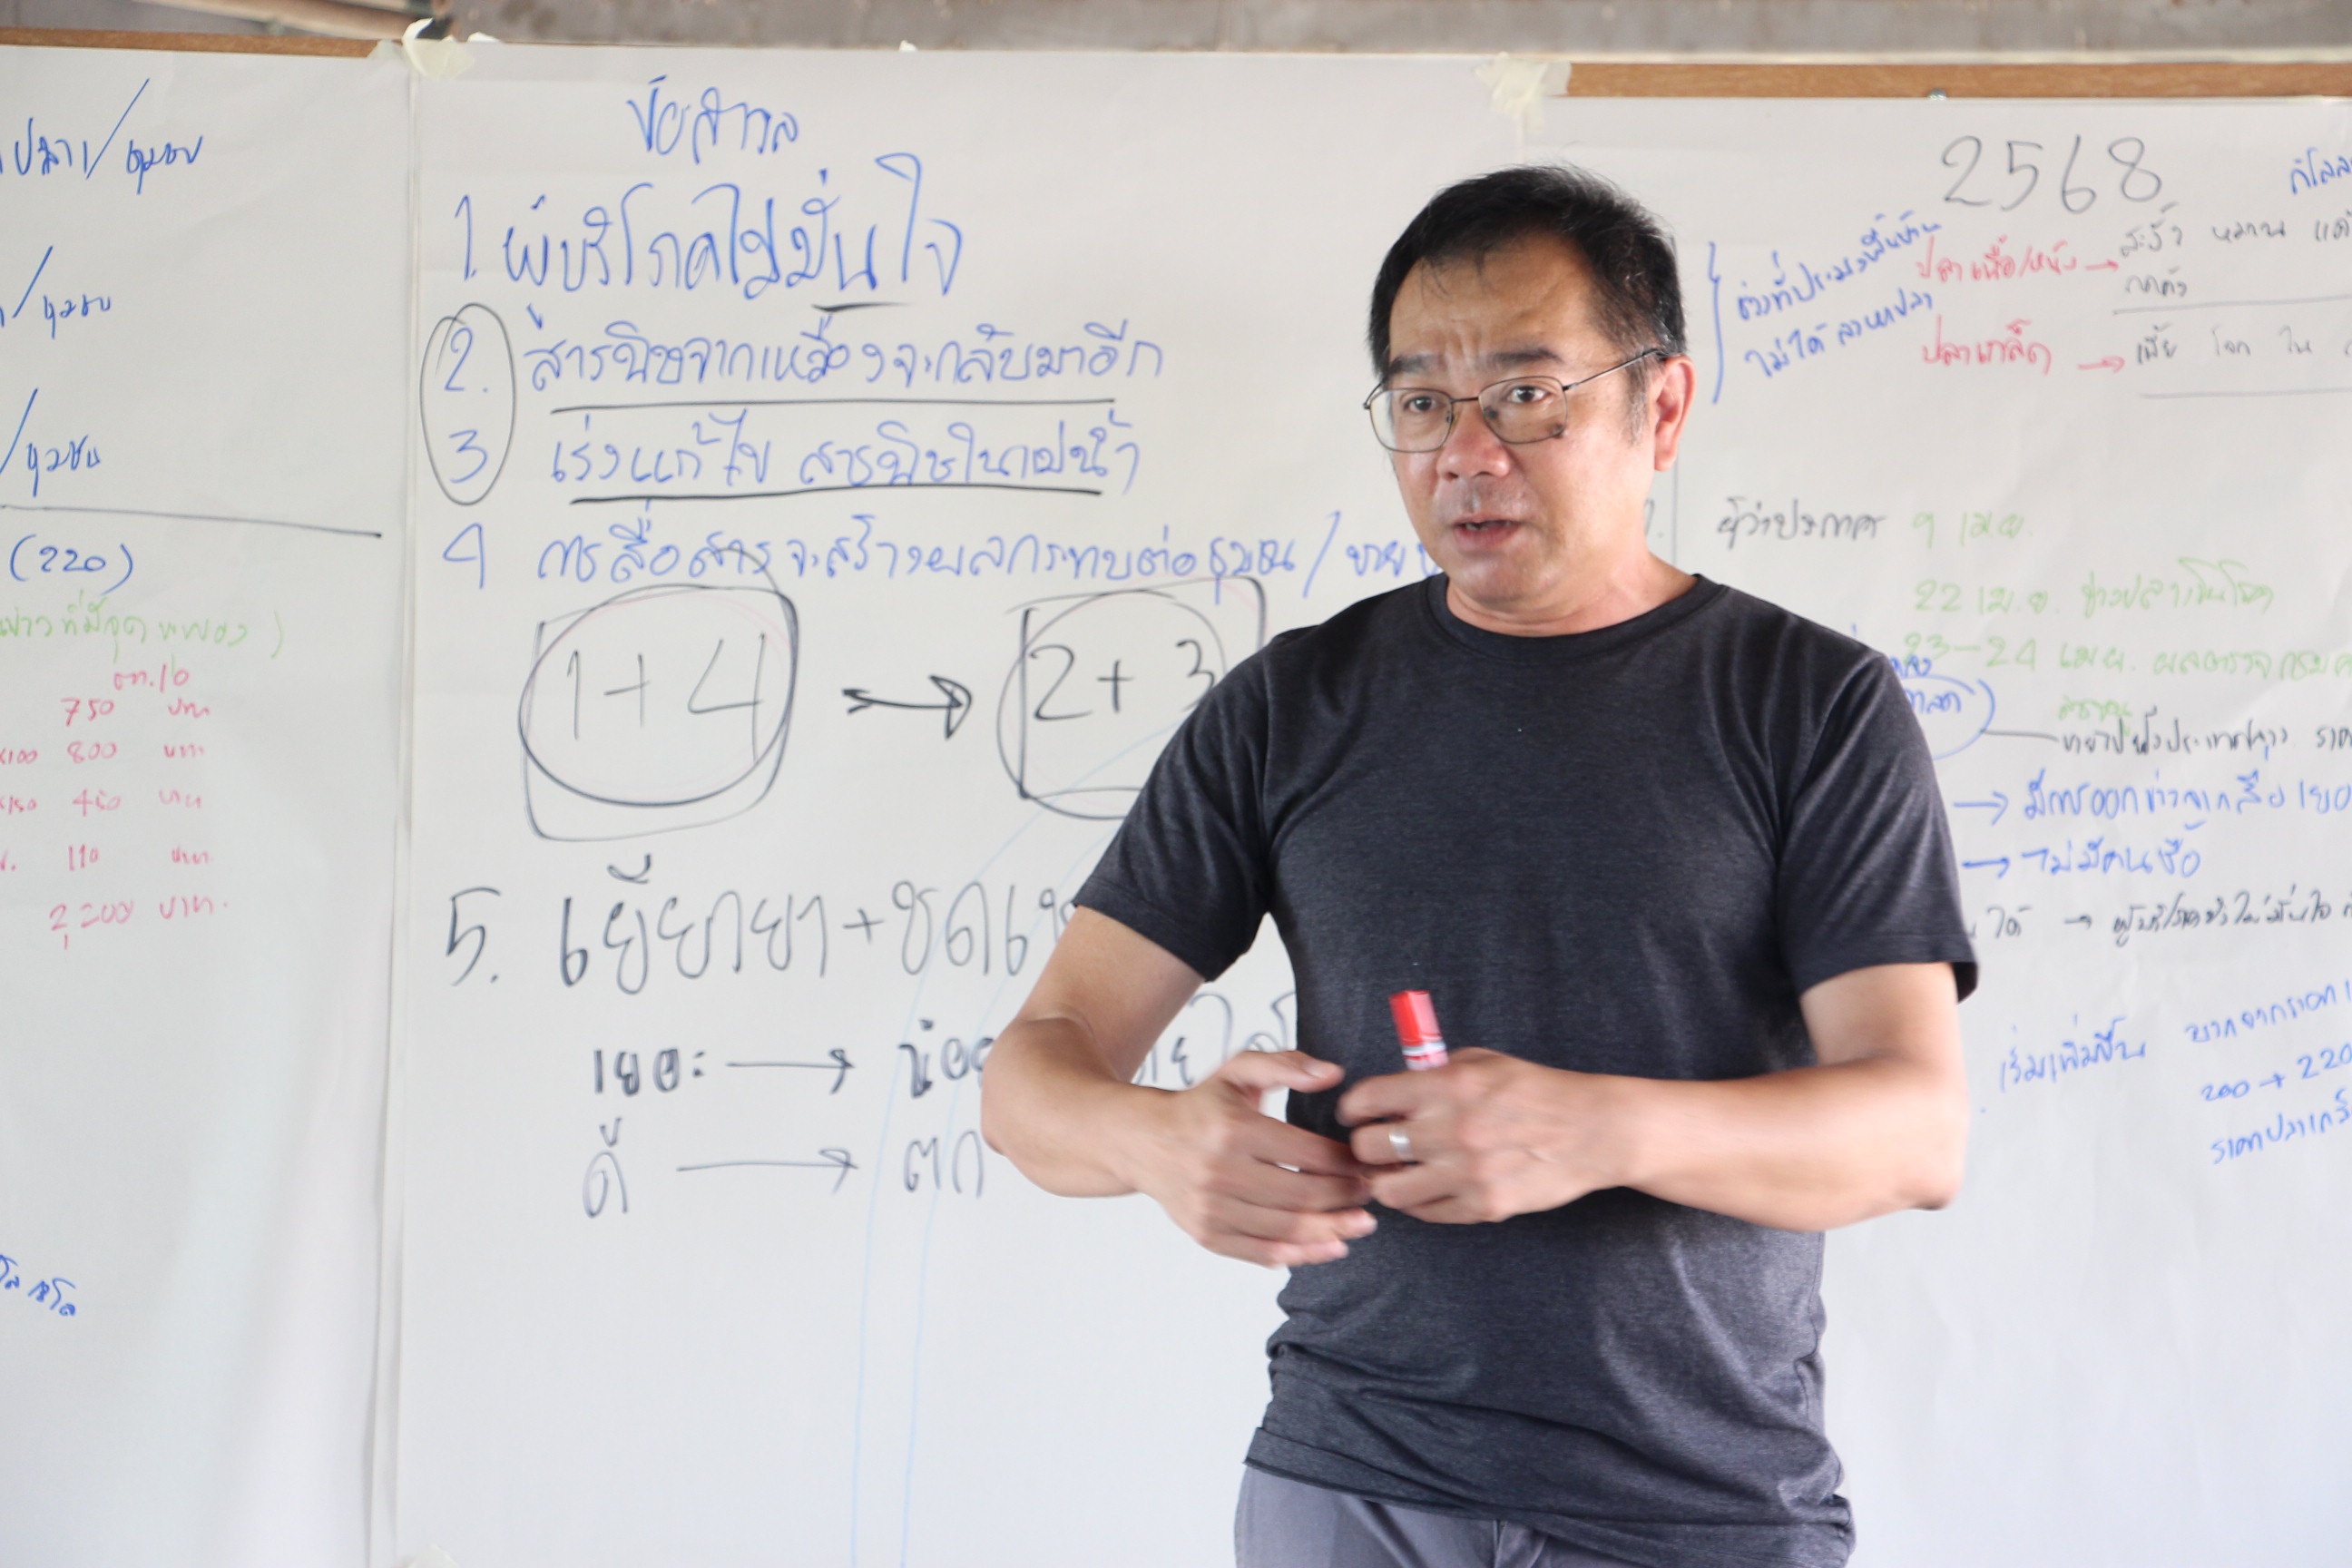 ปลา/ชุมชน
/ชุมชน
/ชุมชน
(220)
ข่าวที่มีจุด
750 บาท
x100 800 บาท
x150 450 บาท
110 บาท
2,200 บาท
ข้อกังวล
1. ผู้บริโภคไม่มั่นใจ
2. สารพิษจากเหมืองจะกลับมาอีก
3 เร่งแก้ไข สารพิษในแม่น้ำ
4 การสื่อสารจะสร้างผลกระทบต่อชุมชน/ขาย
1+4 → 2+3
5. เยียวยา+ชดเ
เยอะ → น้อย
ดี → ตก
2568
ช่วงที่ประมงพื้นบ้าน
ไม่ได้ลงหาปลา
ปลาเนื้อ/หนัง →
ปลาเกล็ด →
ผู้ว่าประกาศ 9 เม.ย.
22 เม.ย. ข่าวปลาเป็นโรค
23-24 เม.ย. ผลตรวจกรมป
→ มีการออกข่าวจากสื่อ
→ ไม่มีคนซื้อ
ได้ → ผู้บริโภคยังไม่มั่นใจ
เริ่มเพิ่มขึ้น บวกจากราคา
200 → 220
ราคาปลาเกล็